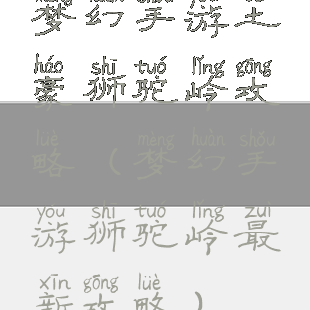 mèng huàn shǒu yóu tǔ
梦幻手游土
háo shī tuó lǐng gōng
豪狮驼岭攻
lüè mèng huàn shǒu
略（梦幻手
yóu shī tuó lǐng zuì
游狮驼岭最
xīn gōng lüè
新攻略）